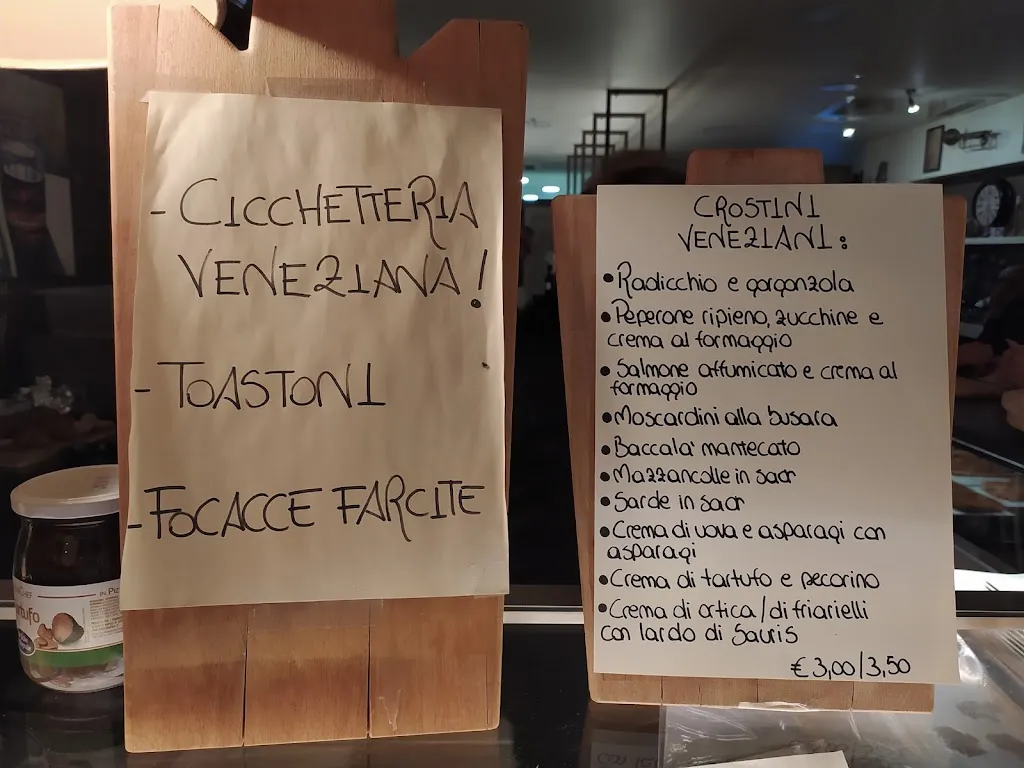 - CICCHETTERIA
VENEZIANA!
- TOASTONI
- FOCACCE FARCITE
CROSTINI
VENEZIANI:
• Radicchio e gorgonzola
• Peperone ripieno, zucchine e
crema al formaggio
• Salmone affumicato e crema al
formaggio
• Moscardini alla busara
• Baccala' mantecato
• Mazzancolle in saor
• Sarde in saor
• Crema di uova e asparagi con
asparagi
• Crema di tartufo e pecorino
• Crema di ortica/di friarielli
con lardo di Sauris
€ 3,00/3,50